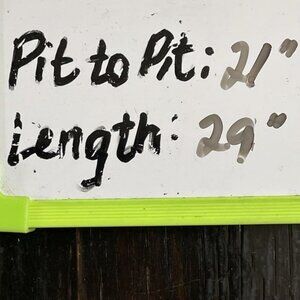 Pit to Pit: 21"
Length: 29"